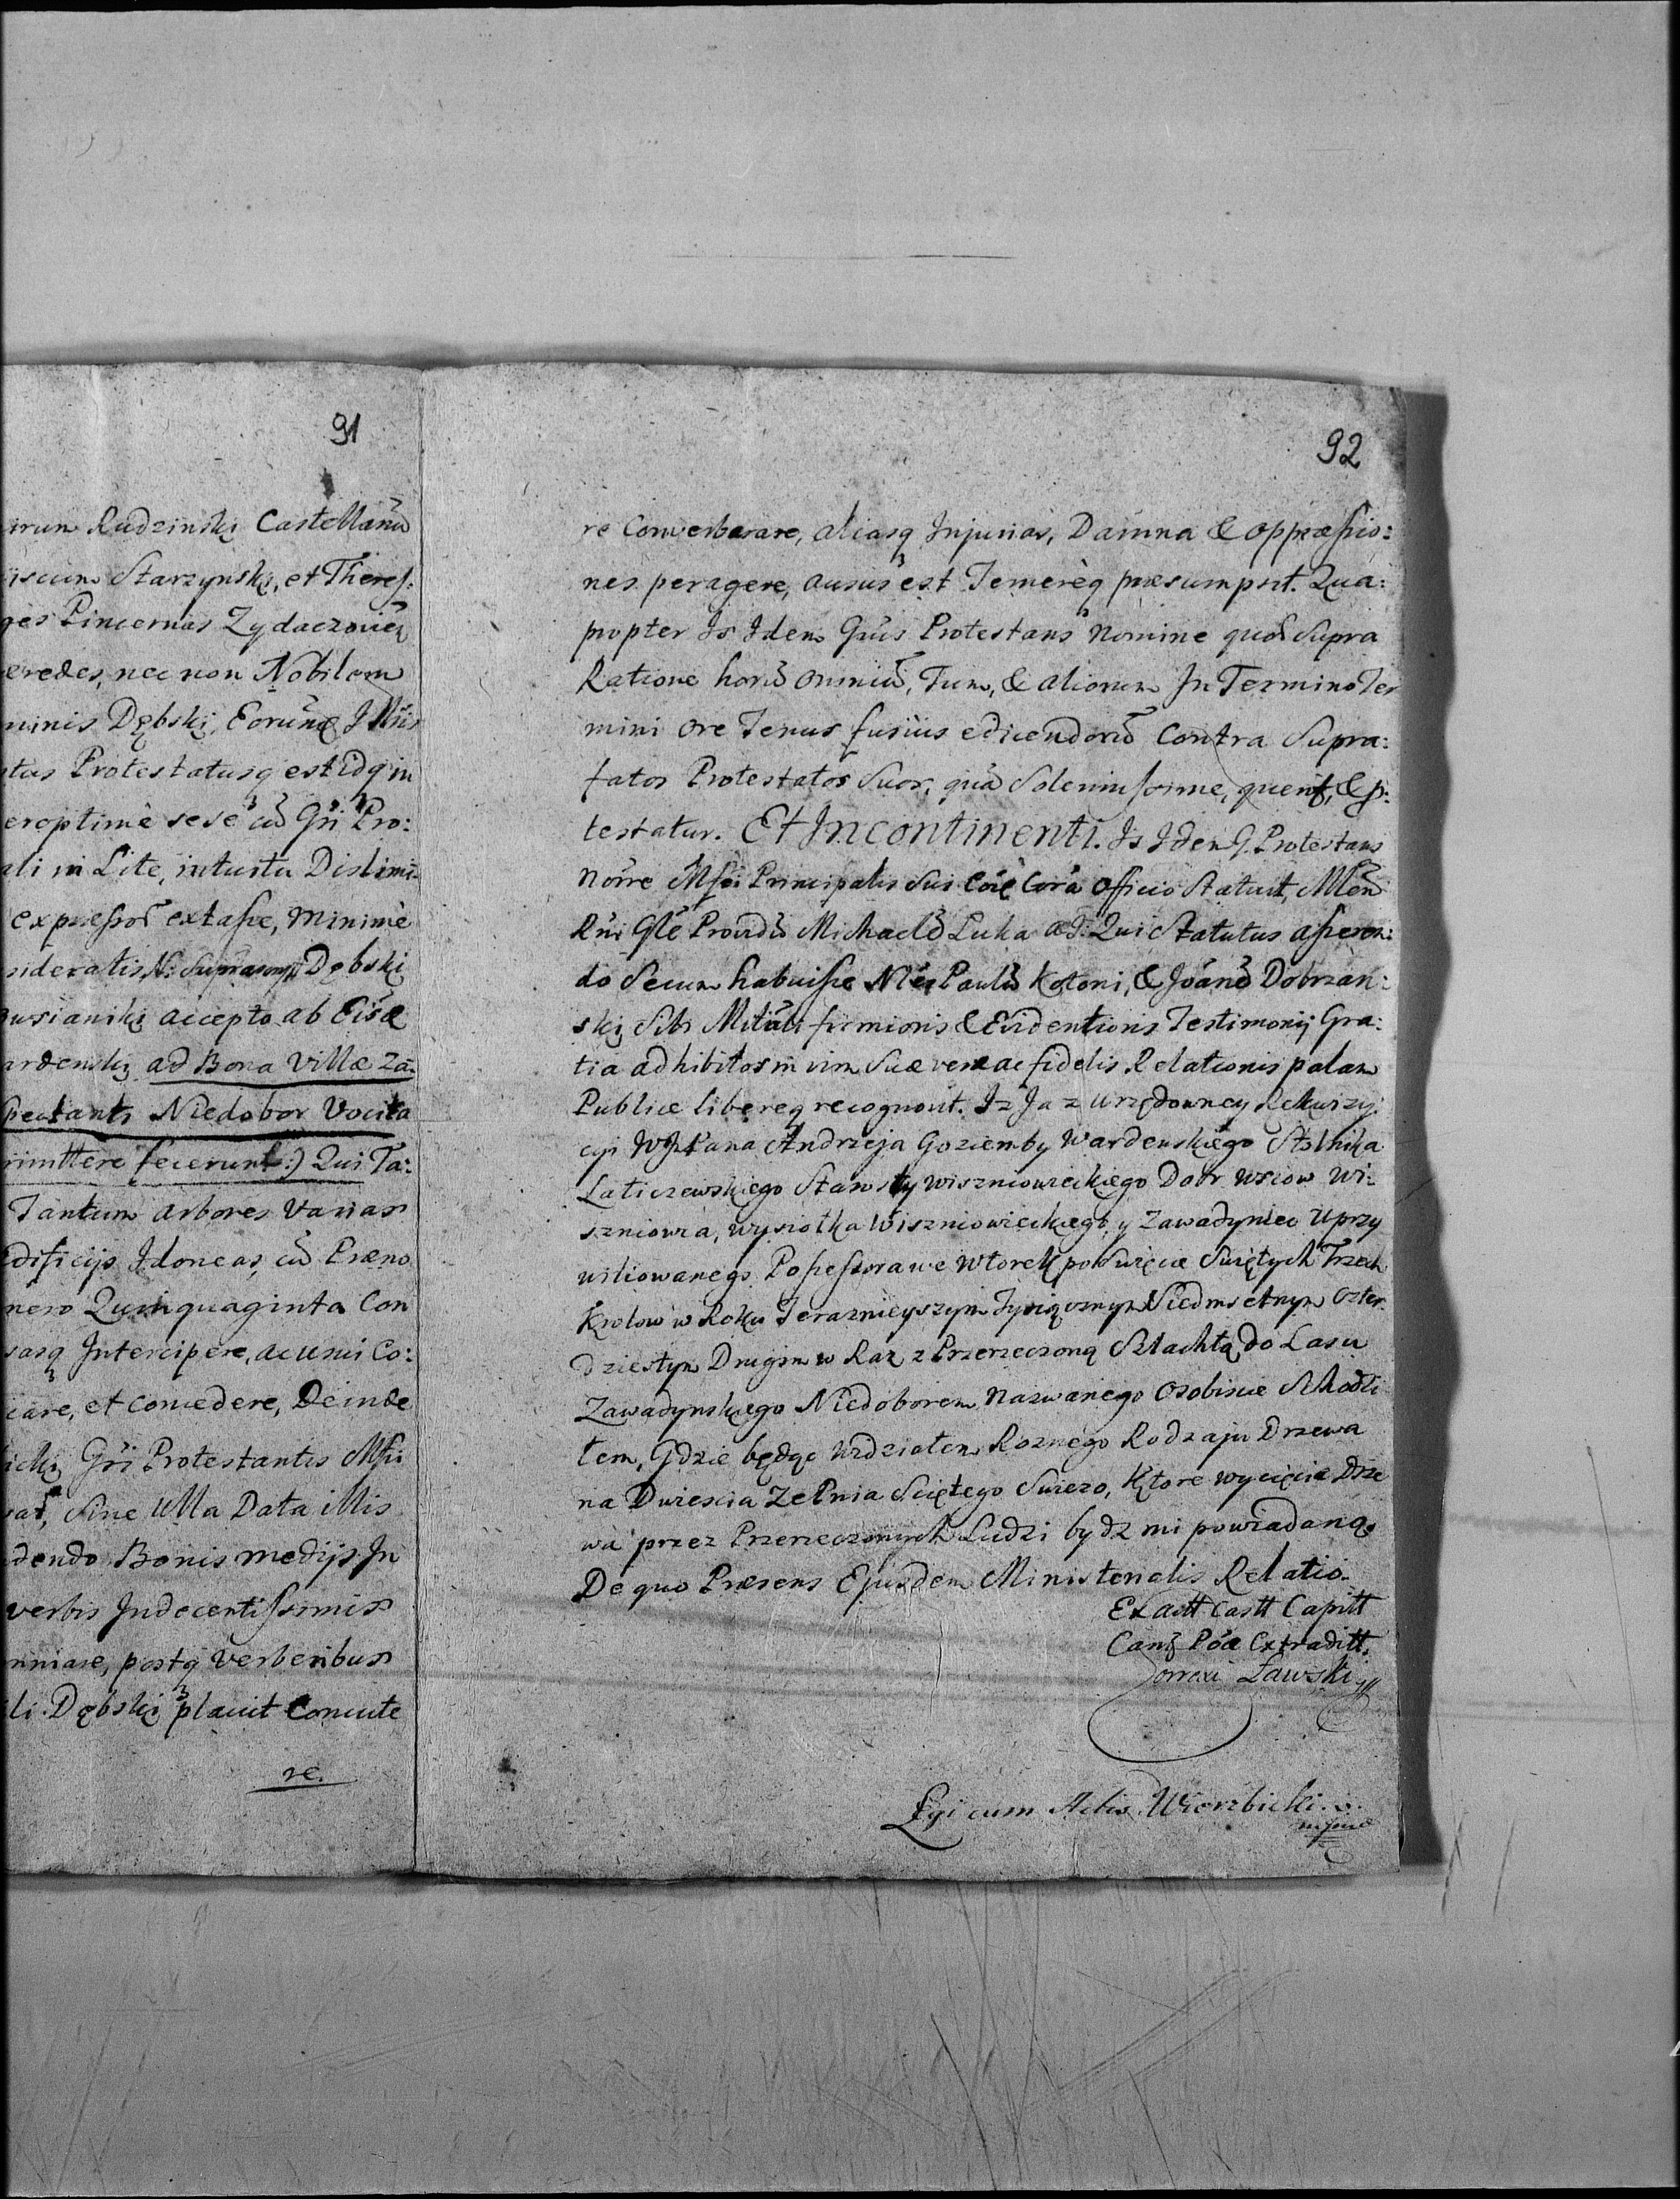 91
irum Rudzinski Castellanū
iscum Starzynski, et Theres:
ges Pincernas Zydaczovien
eredes, nec non Nobilem
minis Dębski, Eorūnq Illris
tus Protestatusq est idq in
ereptimè sese cū Gn̄i Pro:
ali in Lite, intuitu Dislimi:
expressor extasse, minimè
sideratis, N: Suprascrypt Dębski
usianiki accepto ab Eisd
ardenski ad Bona Villæ Za:
spectants Niedobor Vocita
rimittere fecerunt:) Qui Ta:
Tantum arbores varias
ædificijs Idoneas, cū Præno
nero Quinquaginta Con
sasq Intercipere, ac unei Co:
care, et comedere, Deinde
icki Gn̄i Protestantis Msi
sat, Sine Ulla Data illis
dendo Bonis medijs In
verbis Indecentissimis
mniare, postq verberibus
li Dębski placuit Concute
re.
92
re Converberare, aliasq Injurias, Damna & oppressio:
nes peragere, ausus est Temerèq præsumpsit. Qua:
propter Is Idem Gn̄us Protestans Nomine quo Supra
Ratione horū omniū, Tum, & aliorum In Termino Ter
mini ore Tenus fusius edicendorū Contra Supra:
fatos Protestatos Suos, quā Solenissime, querit, & p:
testatur. Et Incontinenti. Is Idem G. Protestans
Nōīe Msi Principalis Sui Corā Officio Statuit, Mlēm
Rn̄i Gl̄e Providū Michaelē Luka &c: Qui Statutus asseren:
do Secum habuisse Nles Paulū Kotoni, & Joānē Dobrzań:
ski Sibi Militāli firmioris & Evidentioris Testimonij Gra:
tia adhibitos in vim Suæ veræ ac fidelis Relationis palam
Publice libereq recognovit. Iz Ja z urzędowney Rekwizy:
cyi WJPana Andrzeja Goziemby Wardenskiego Stolnika
Laticzewskiego Starosty Wiszniowieckiego Dobr wsiow Wi:
szniowia, wysiotka Wiszniowieckiego, y Zawadyniec Uprzy
wiliowanego Possessora we wtorek po Swięcie Swiętych Trzech
Krolow w Roku Teraznieyszym Tysiącznym Siedmsetnym Czter:
dziestym Drugim w Raz z Przerzeczoną Szlachtą do Lasu
Zawadynskiego Niedoborem Nazwanego Osobiscie Schodzi
łem, Gdzie będąc widziałem Roznego Rodzaju Drzewa
na Dwiescia Ze Pnia Sciętego Swiezo, ktore wycięcie Drze
wa przez Przerzeczonych Ludzi bydz mi powiadano
De quo Præsens Ejusdem Ministerialis Relatio.
Ex actt Castt Capitt
Camb Pōd Extraditt.
Correxi Ławski
Legi cum Actis Wierzbicki
mpria